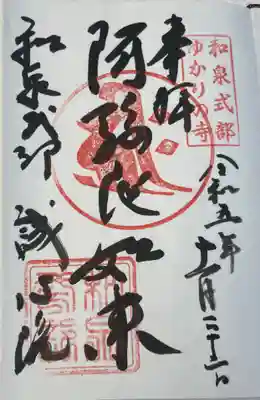 和泉式部
ゆかりの寺
奉拝
令和五年
十一月二十二日
阿弥陀如来
和泉式部 誠心院